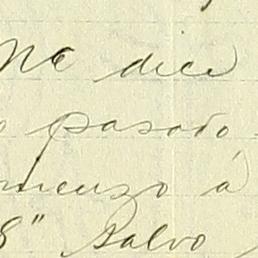 Me dice
pasado
menzo á
8" Salvo